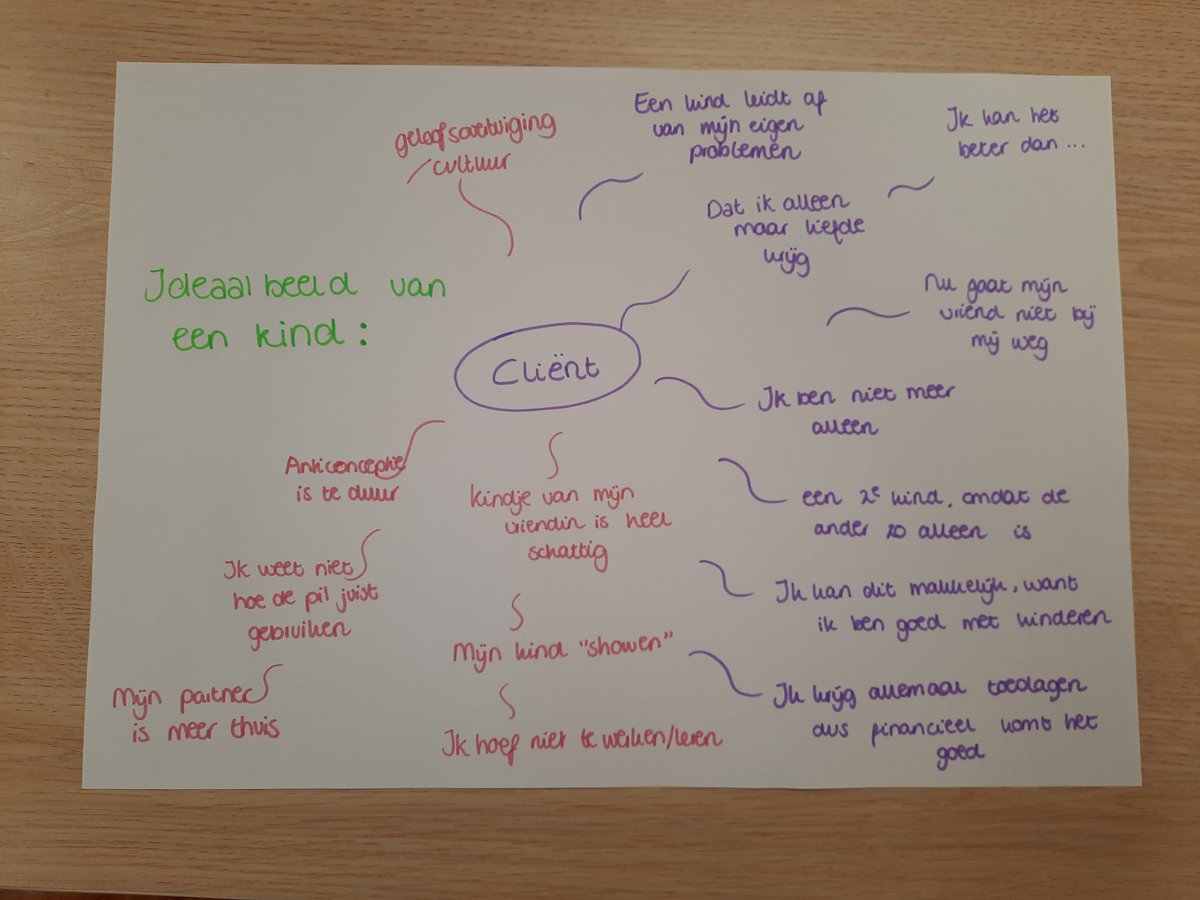 geloofsovertuiging
/cultuur
Een kind leidt af
van mijn eigen
problemen
Ik kan het
beter dan ...
Dat ik alleen
maar liefde
krijg
Ideaalbeeld van
een kind:
Nu gaat mijn
vriend niet bij
mij weg
Cliënt
Ik ben niet meer
alleen
Anticonceptie
is te duur
kindje van mijn
vriendin is heel
schattig
een 2e kind, omdat de
ander zo alleen is
Ik weet niet
hoe de pil juist
gebruiken
Ik kan dit makkelijk, want
ik ben goed met kinderen
Mijn kind "showen"
Mijn partner
is meer thuis
Ik krijg allemaal toeslagen
dus financieel komt het
goed
Ik hoef niet te werken/leren